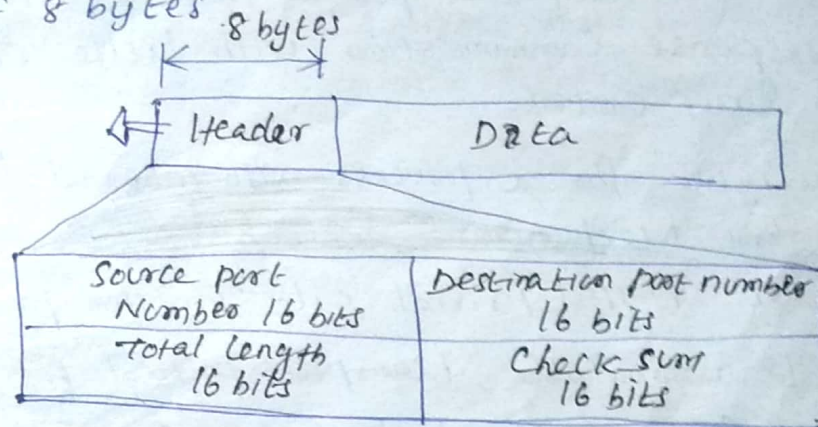 8 bytes
8 bytes
Header
Data
Source port
Number 16 bits
Destination port number
16 bits
Total length
16 bits
Check sum
16 bits